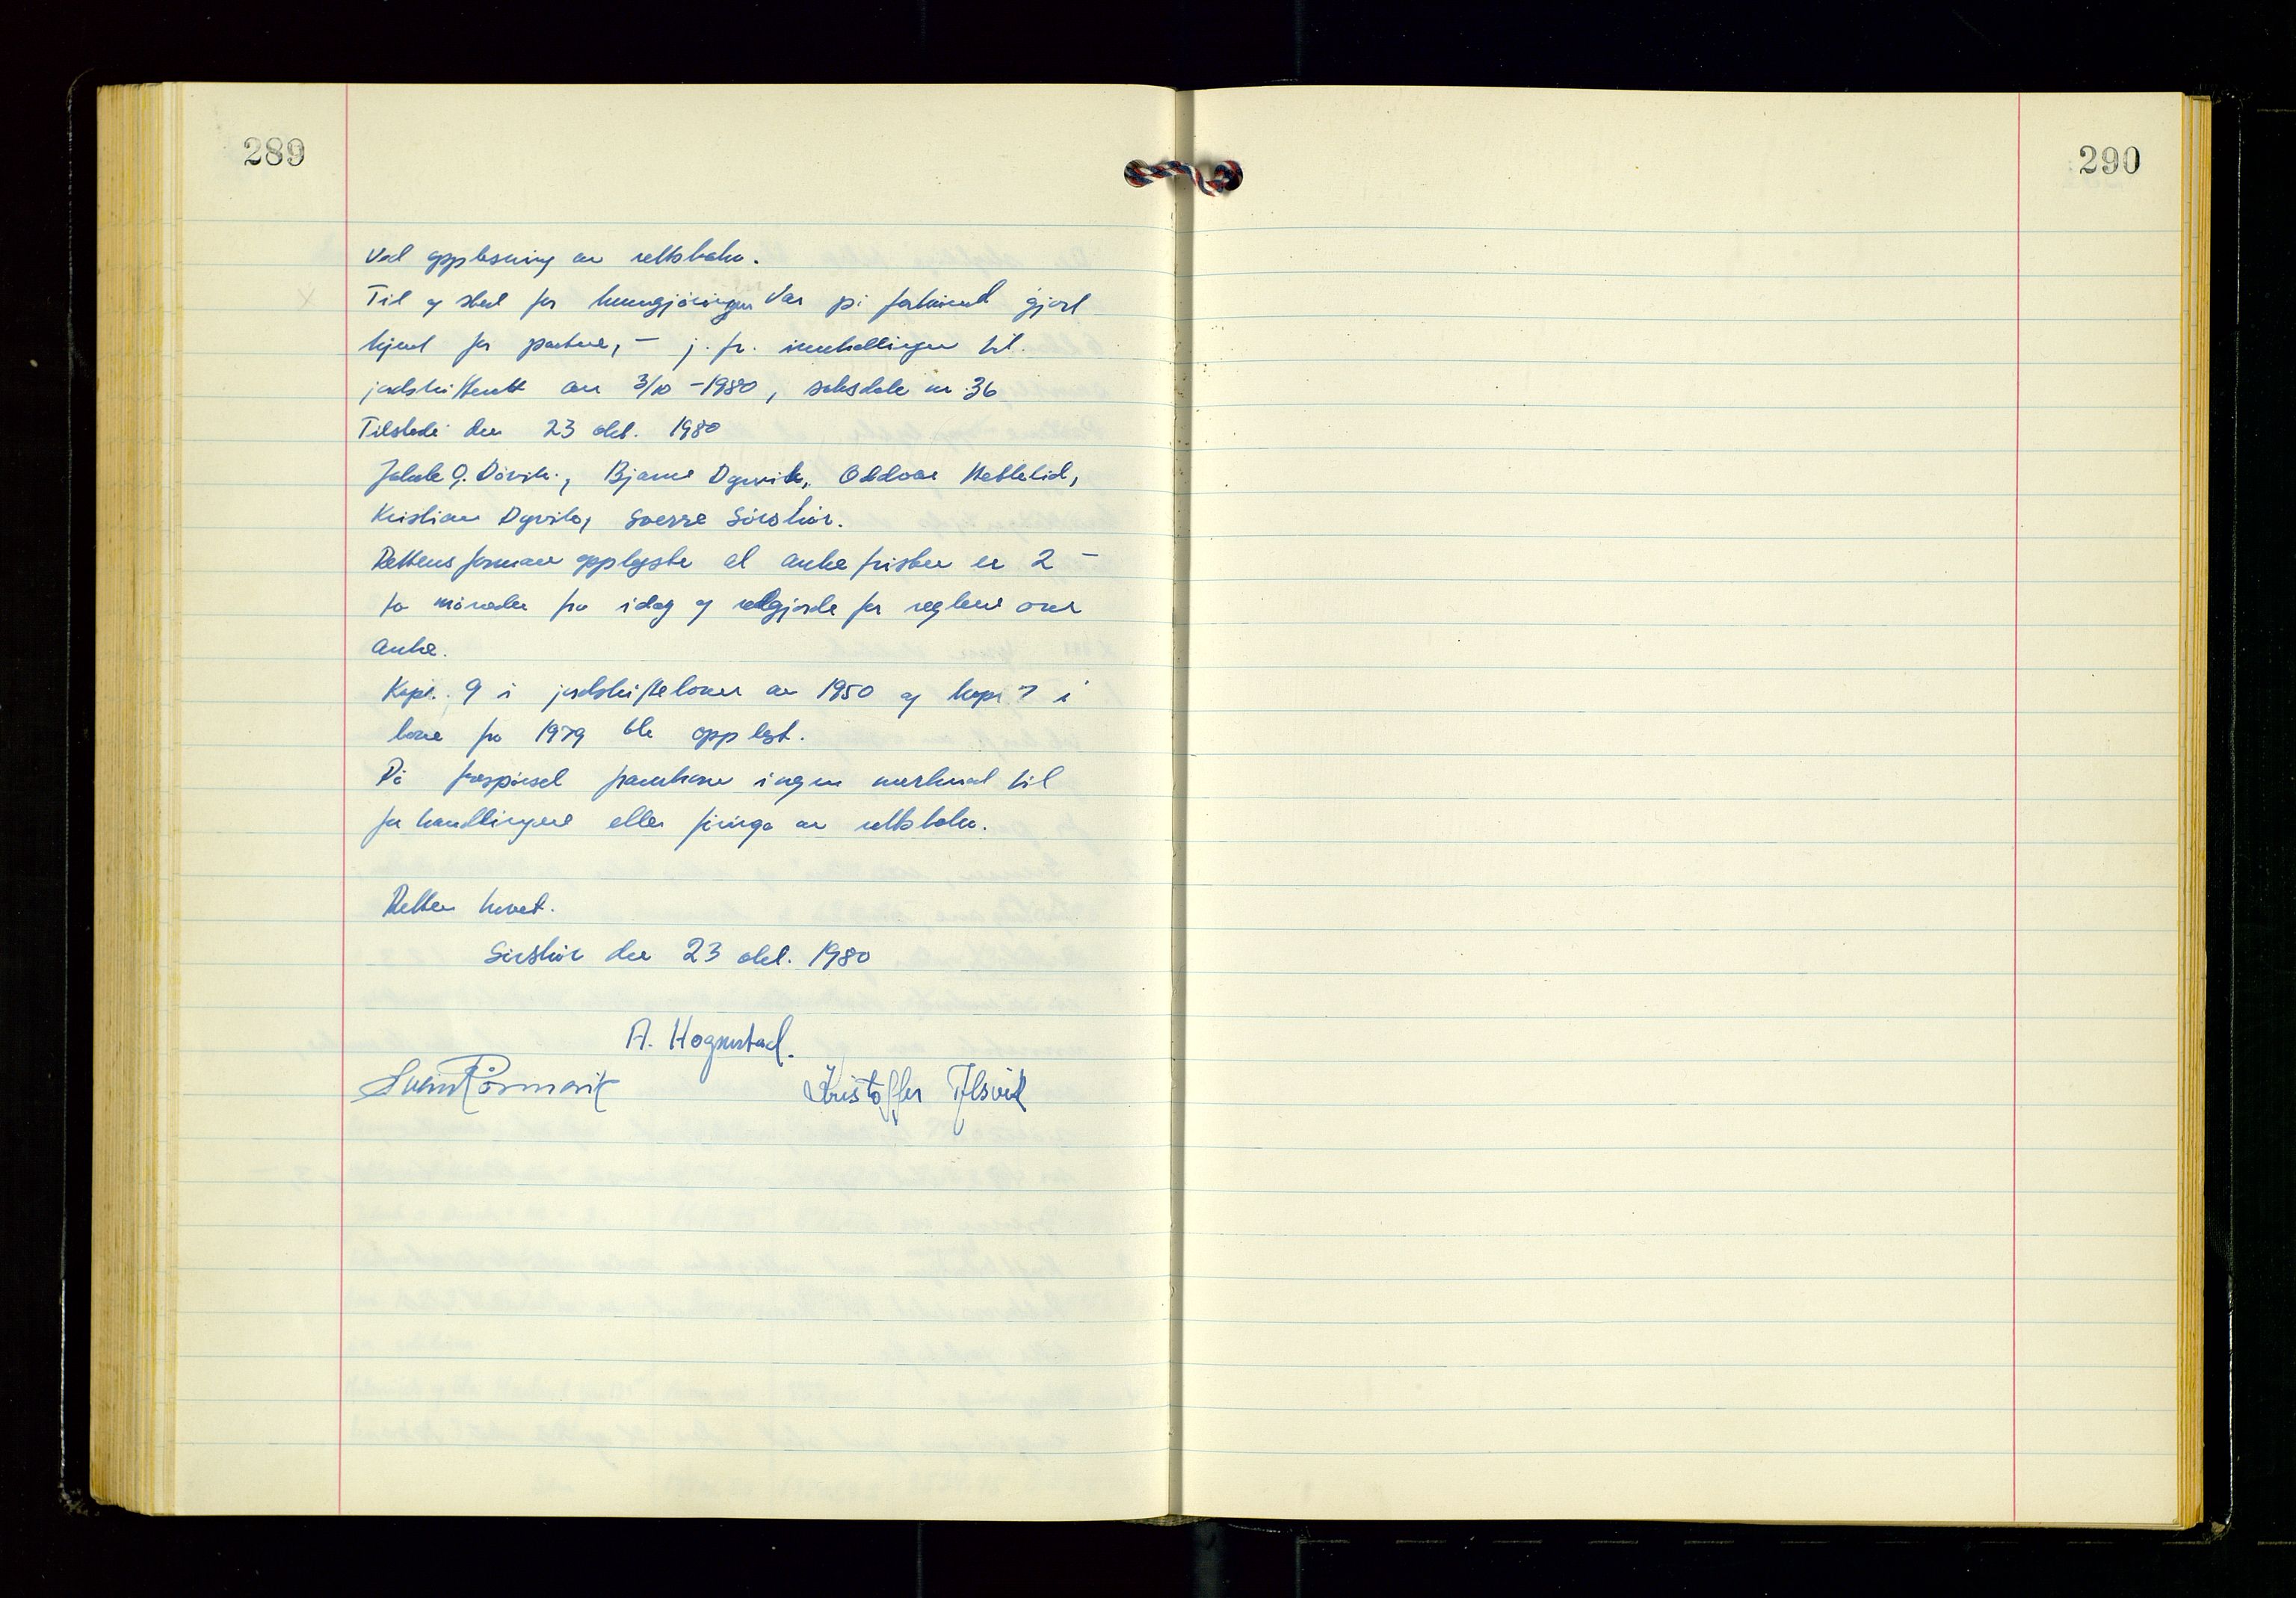 289
290
ved opplesning av rettsboka.
Til og sted for kunngjøringen var på forhånd gjort
kjent for partene, - j. fr. innkallingen til
jordskifterett av 3/10 - 1980, saksdok nr 36
Tilstede den 23 okt. 1980
Jakob G. Døvik., Bjarne Dyrvik, Oddvar Nettelid,
Kristian Dyrvik, Sverre Sörskår.
Rettens formann opplyste at anke fristen er 2 -
to måneder fra idag og redgjorde for reglene om
anke.
Kap. 9 i jordskifteloven av 1950 og kap 7 i
lova fra 1979 ble opplest.
På forespørsel framkom ingen merknad til
forhandlingene eller føringa av rettsboka.
Retten hevet.
Sörskår den 23 okt. 1980
A. Hognestad.
Svein Røsmarik
Kristoffer Alsvik